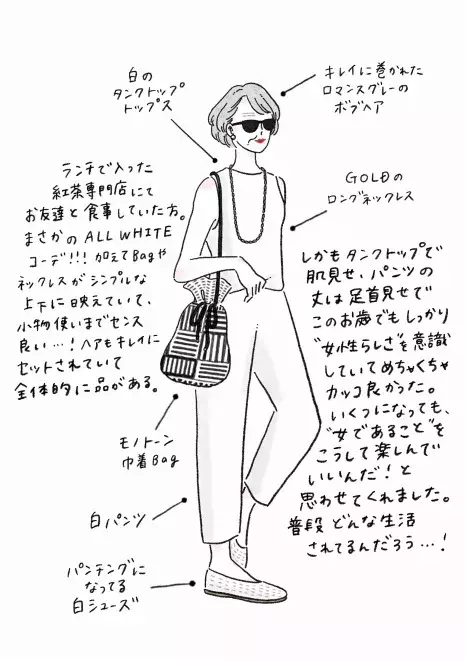 白の
タンクトップ
トップス
キレイに巻かれた
ロマンスグレーの
ボブヘア
GOLDの
ロングネックレス
ランチで入った
紅茶専門店にて
お友達と食事していた方。
まさかの ALL WHITE
コーデ!!! 加えてBagや
ネックレスがシンプルな
上下に映えていて、
小物使いまでセンス
良い…! ヘアもキレイに
セットされていて
全体的に品がある。
しかもタンクトップで
肌見せ、パンツの
丈は足首見せで
このお歳でもしっかり
"女性らしさ"を意識
していてめちゃくちゃ
カッコ良かった。
いくつになっても、
"女であること"を
こうして楽しんで
いいんだ!と
思わせてくれました。
普段どんな生活
されてるんだろう…!
モノトーン
巾着Bag
白パンツ
パンチングに
なってる
白シューズ